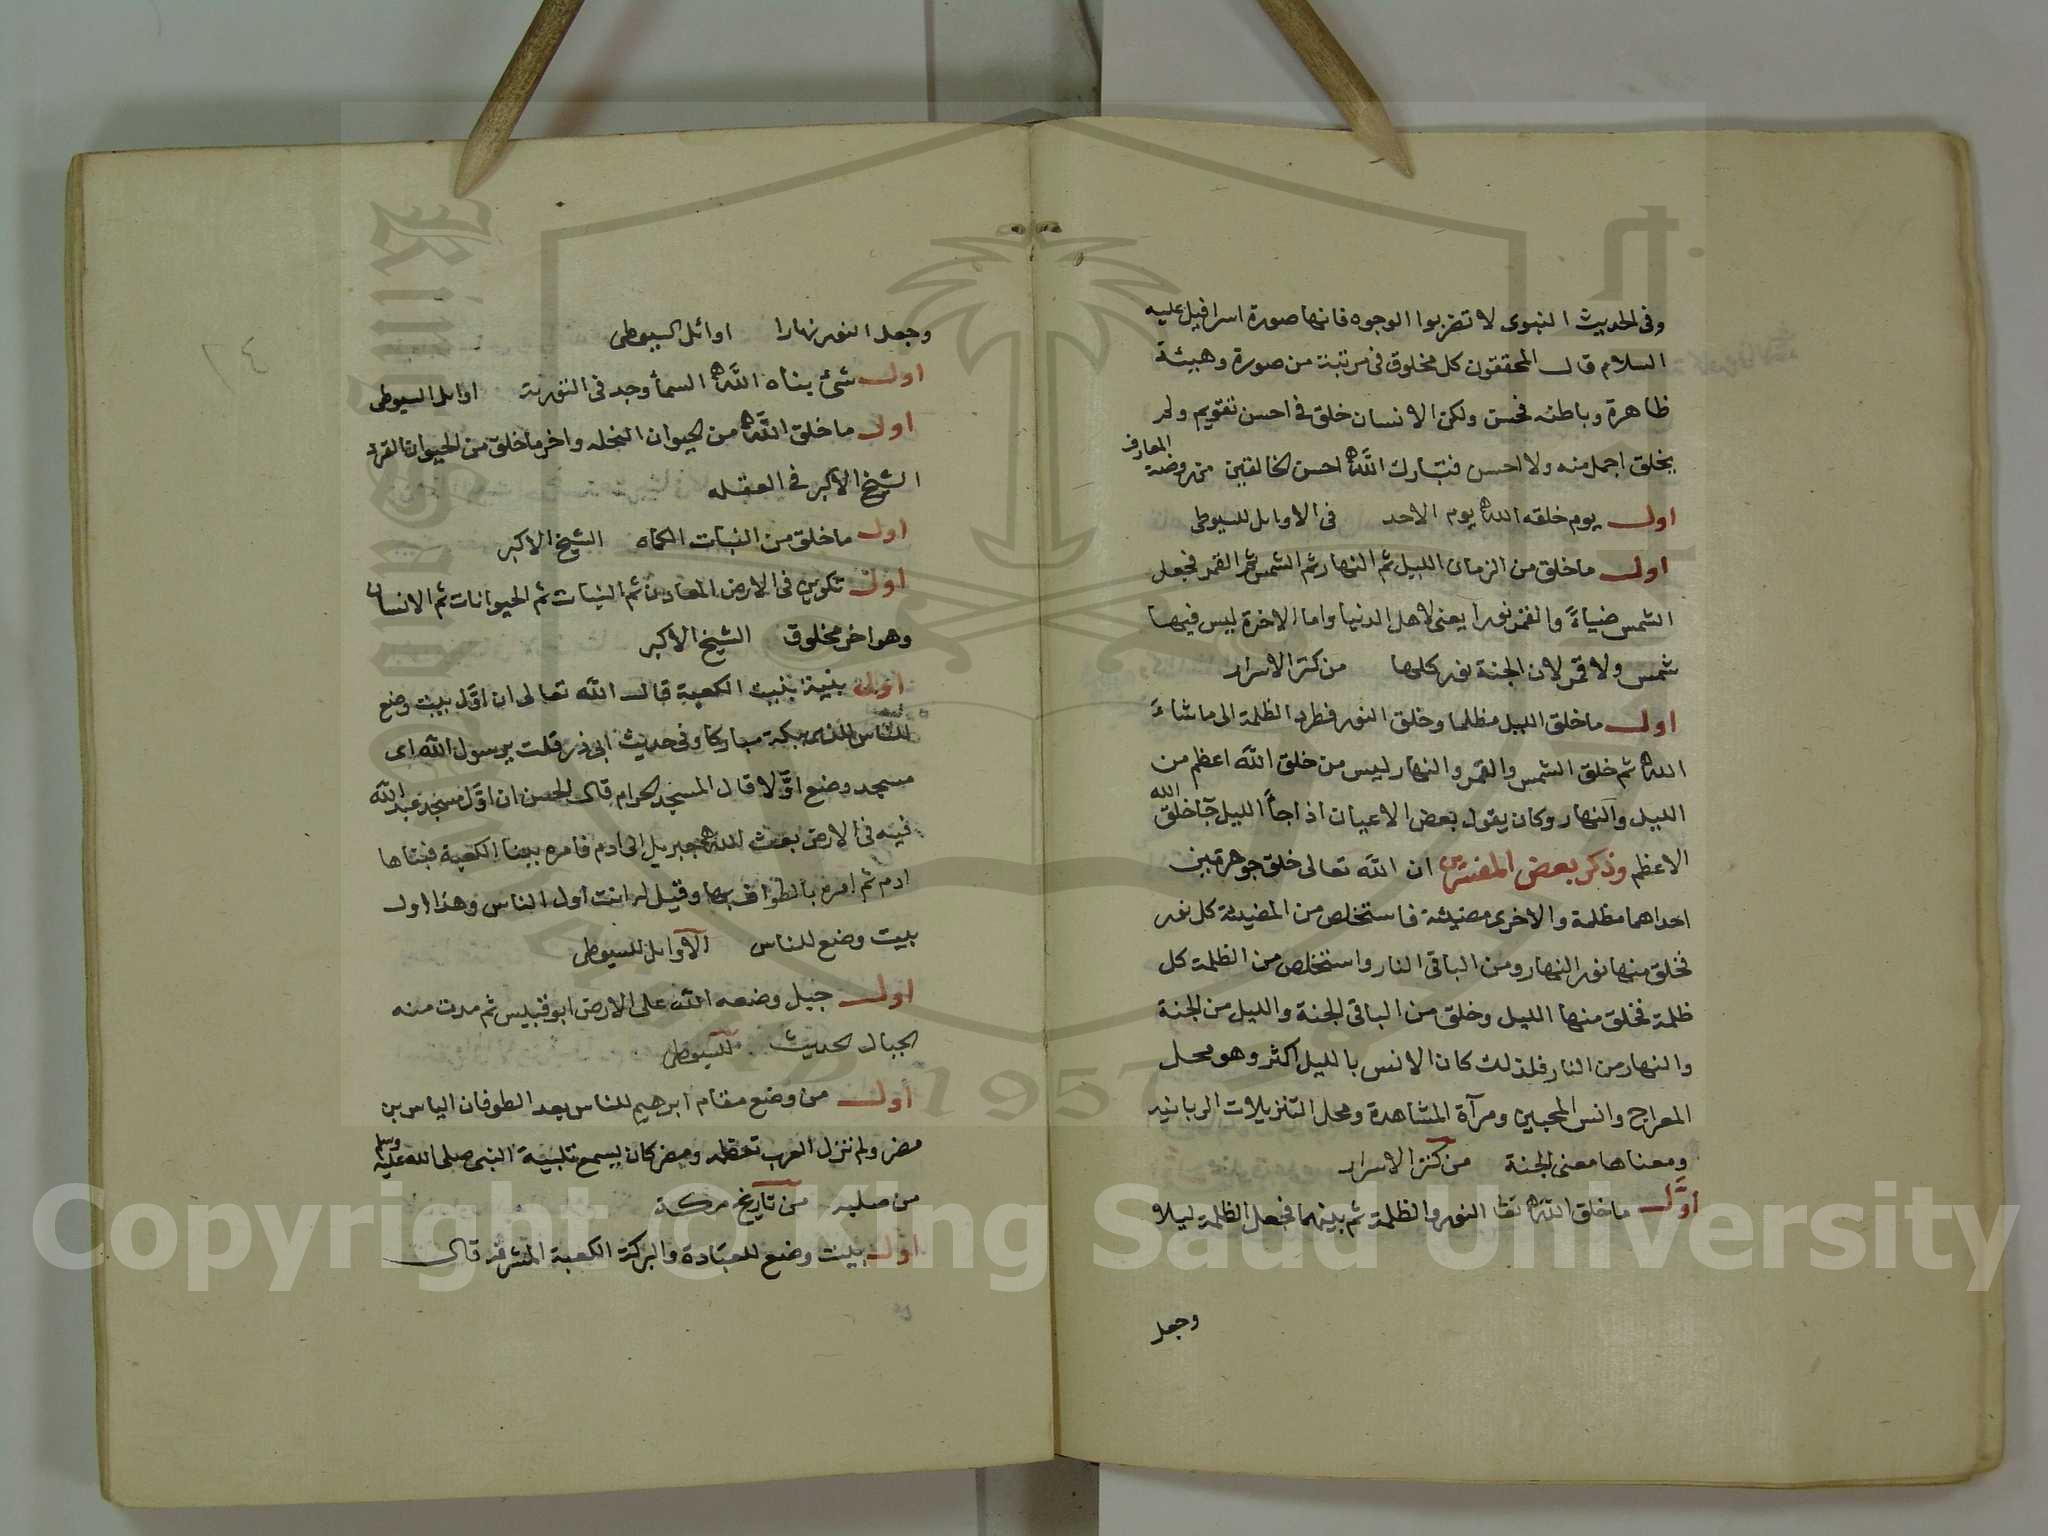 وفى الحديث النبوى لا تضربوا الوجوه فانها صورة اسرافيل عليه
السلام قال المحققون كل مخلوق فى مرتبة من صورة وهيئة
ظاهرة وباطنه فحسن ولكن الانسان خلق فى احسن تقويم ولم
يخلق اجمل منه ولا احسن فتبارك الله احسن الخالقين من روضة المعارف
اول يوم خلقه الله يوم الاحد فى الاوايل للسيوطى
اول ما خلق من الزمان الليل ثم النهار ثم الشمس ثم القمر فجعل
الشمس ضياءً والقمر نورا يعنى لاهل الدنيا واما الاخرة ليس فيها
شمس ولا قمر لان الجنة نور كلها من كنز الاسرار
اول ما خلق الليل مظلما وخلق النور فطرد الظلمة الى ما شاء
الله ثم خلق الشمس والقمر والنهار ليس من خلق الله اعظم من
الليل والنهار وكان يقول بعض الاعيان اذا جاً الليل جآ خلق الله
الاعظم وذكر بعض المفسرين ان الله تعالى خلق جوهرتين
احداهما مظلمة والاخرى مضيئة فاستخلص من المضيئة كل نور
فخلق منها نور النهار ومن الباقى النار واستخلص من الظلمة كل
ظلمة فخلق منها الليل وخلق من الباقى الجنة والليل من الجنة
والنهار من النار فلذلك كان الانس بالليل اكثر وهو محل
المعراج وانس المحبين ومرآة المشاهدة ومحل التنزيلات الربانيه
ومعناها معنى الجنة من كنز الاسرار
اوّل ما خلق الله تعا النور والظلمة ثم بينهما فجعل الظلمة ليلا
وجعل
٤١
وجعل النور نهارا اوائل السيوطى
اول شئ بناه الله السماً وجد فى التورية اوايل السيوطى
اول ما خلق الله من الحيوان النحله واخر ما خلق من الحيوان القرد
الشيخ الاكبر فى العقله
اول ما خلق من النبات الكماه الشيخ الاكبر
اول تكوين فى الارض المعادن ثم النبات ثم الحيوانات ثم الانسان
وهو اخر مخلوق الشيخ الاكبر
اول بنية بنيت الكعبة قال الله تعالى ان اوّل بيت وضع
للناس للذى ببكة مباركا وفى حديث ابى ذر قلت يرسول الله اى
مسجد وضع اوّلا قال المسجد الحرام قال الحسن ان اوّل مسجد عبد الله
فيه فى الارض بعث الله جبريل الى ادم فامره ببنا الكعبة فبناها
ادم ثم امره بالطواف بها وقيل له انت اول الناس وهذا اول
بيت وضع للناس الاوايل للسيوطى
اول جبل وضعه الله على الارض ابو قبيس ثم مدت منه
الجبال الحديث للسيوطى
أول من وضع مقام ابرهيم للناس بعد الطوفان الياس بن
مضر ولم تزل العرب تعظمه ومضر كان يسمع تلبية النبى صلى الله عليه وسلم
من صلبه من تاريخ مكة
اول بيت وضع للعبادة والبركة الكعبة المشرفه قال
King Saud University
1957
Copyright © King Saud University